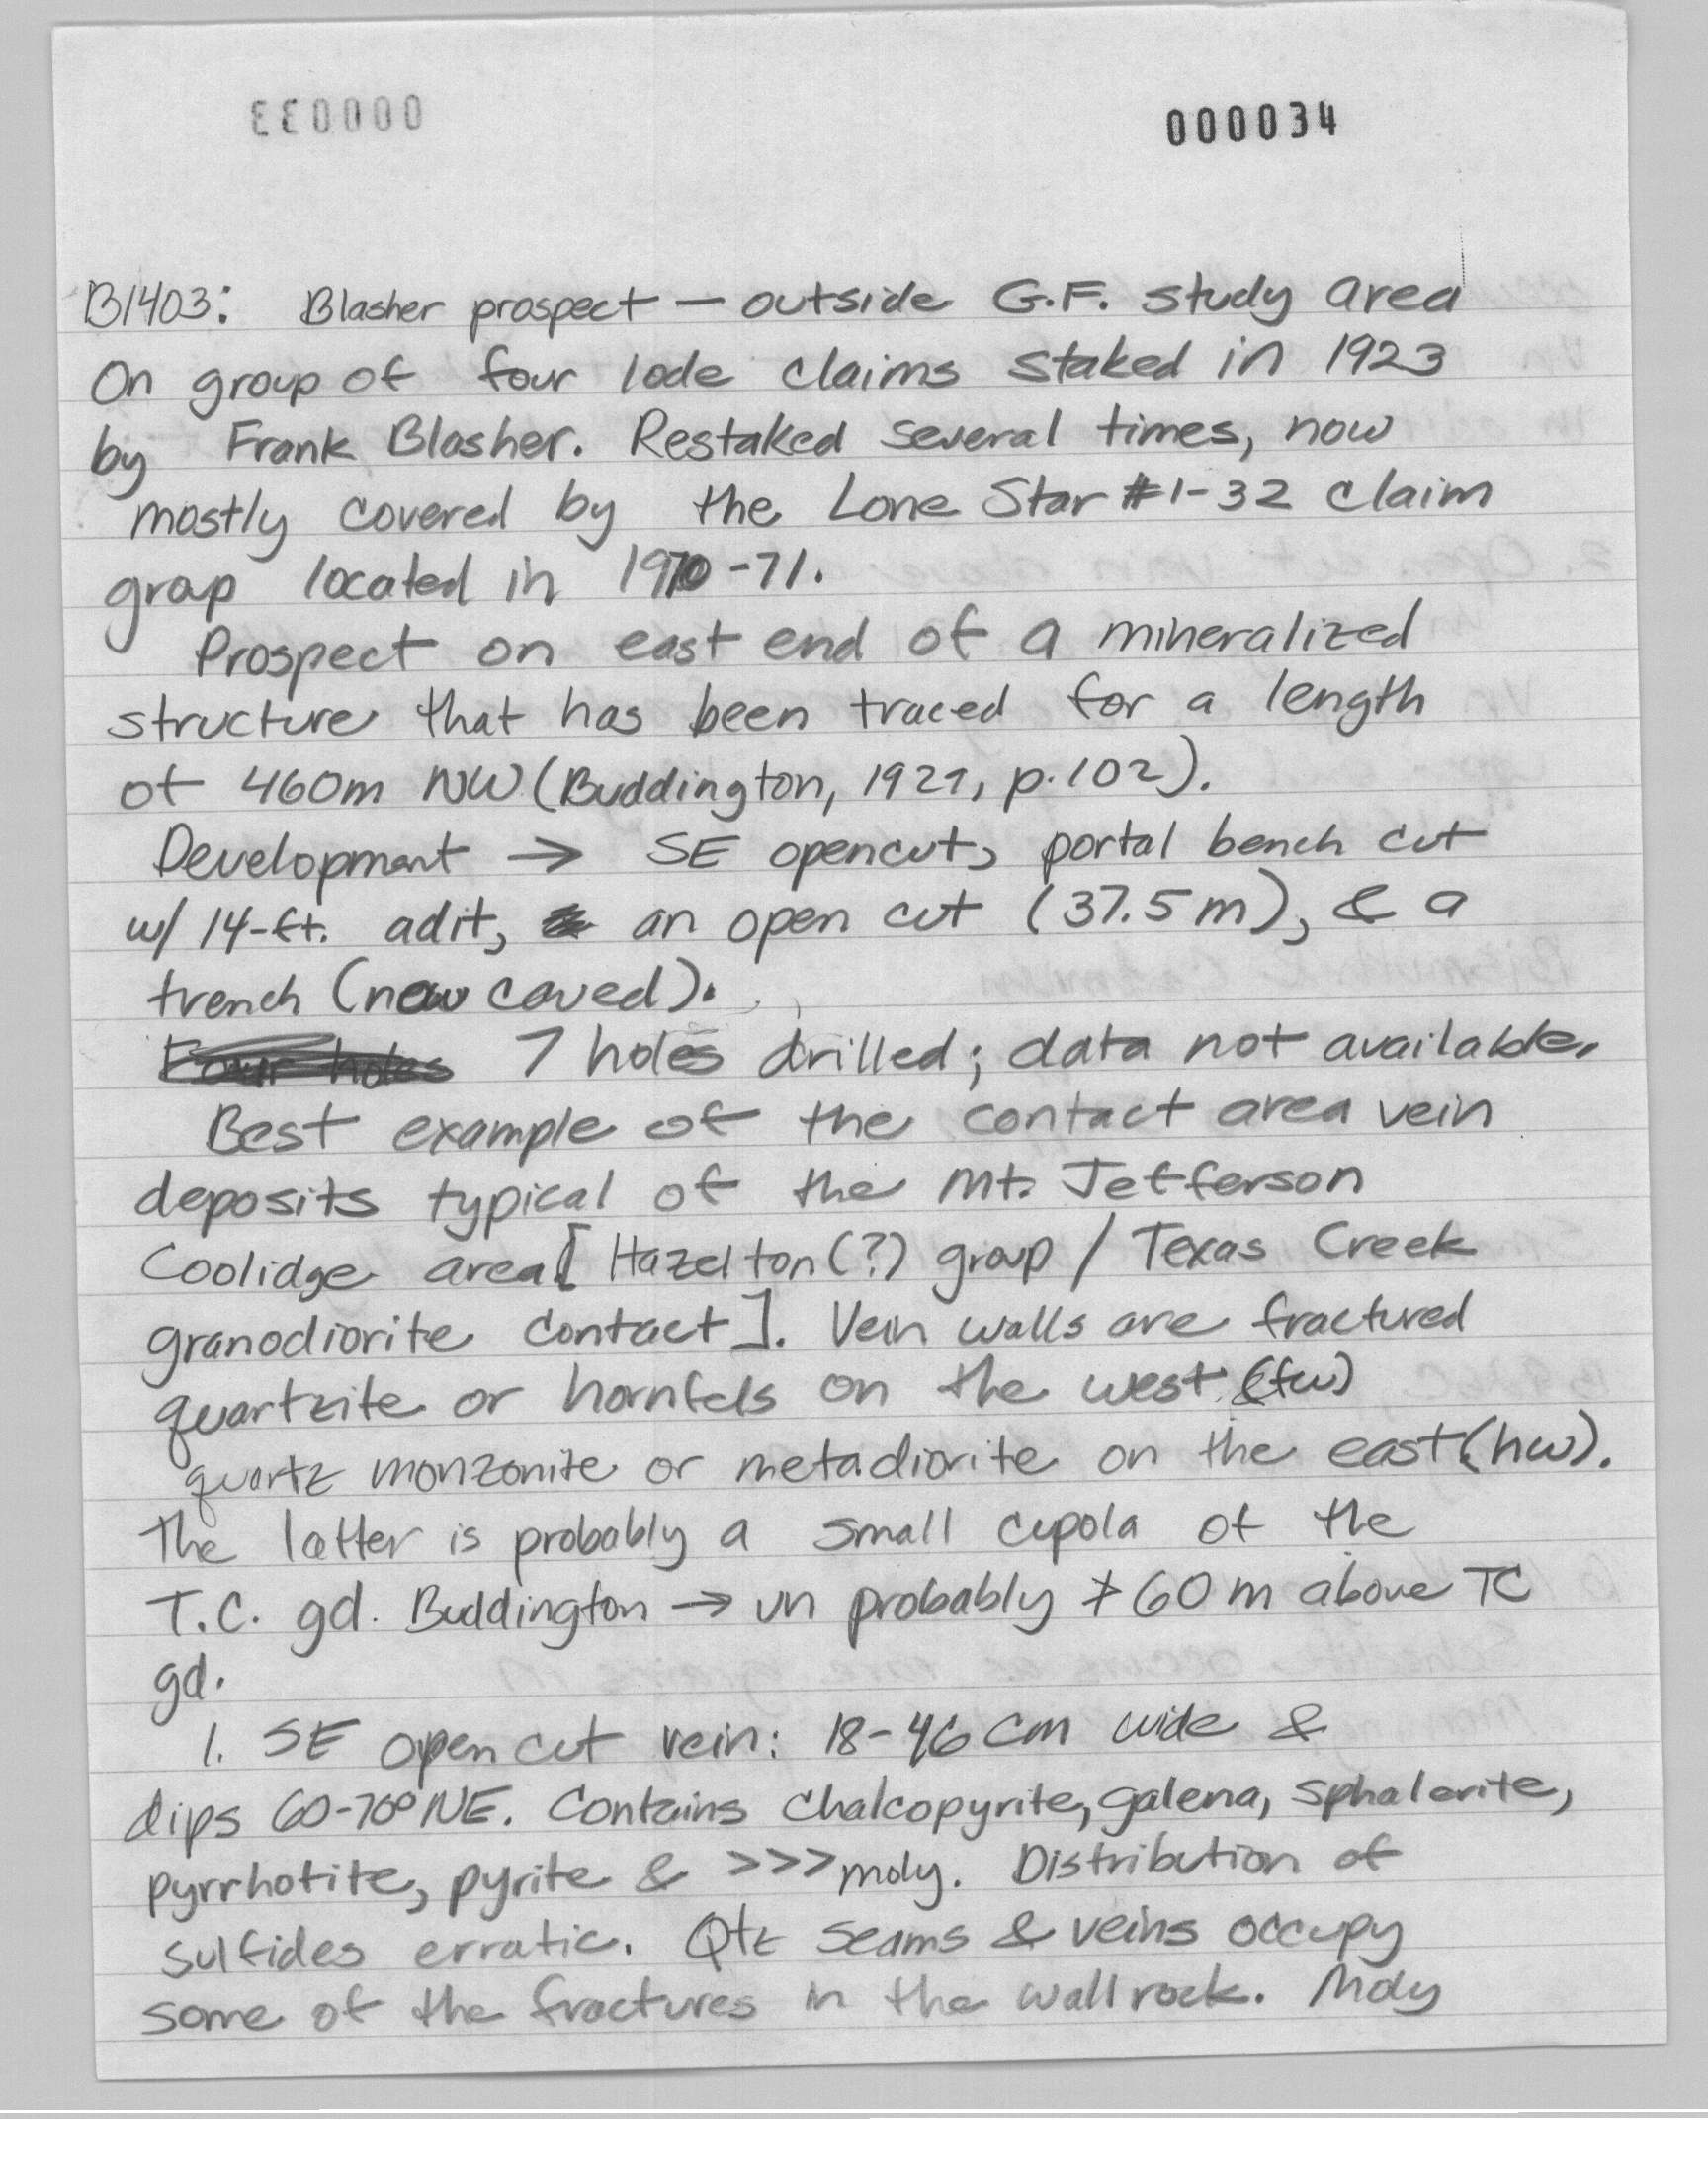 000033 000034
B1403: Blasher prospect — outside G.F. study area
On group of four lode claims staked in 1923
by Frank Blasher. Restaked several times, now
mostly covered by the Lone Star #1-32 claim
group located in 1970-71.
Prospect on east end of a mineralized
structure that has been traced for a length
of 460m NW (Buddington, 1929, p.102).
Development → SE opencut, portal bench cut
w/ 14-ft. adit, an open cut (37.5 m), & a
trench (now caved).
Four holes 7 holes drilled; data not available.
Best example of the contact area vein
deposits typical of the Mt. Jefferson
Coolidge area [Hazelton(?) group / Texas Creek
granodiorite contact]. Vein walls are fractured
quartzite or hornfels on the west (fw)
quartz monzonite or metadiorite on the east (hw).
The latter is probably a small cupola of the
T.C. gd. Buddington → vn probably ≯ 60 m above TC
gd.
1. SE open cut vein: 18-46 cm wide &
dips 60-70° NE. Contains chalcopyrite, galena, sphalerite,
pyrrhotite, pyrite & >>> moly. Distribution of
sulfides erratic. Qtz seams & veins occupy
some of the fractures in the wallrock. Moly